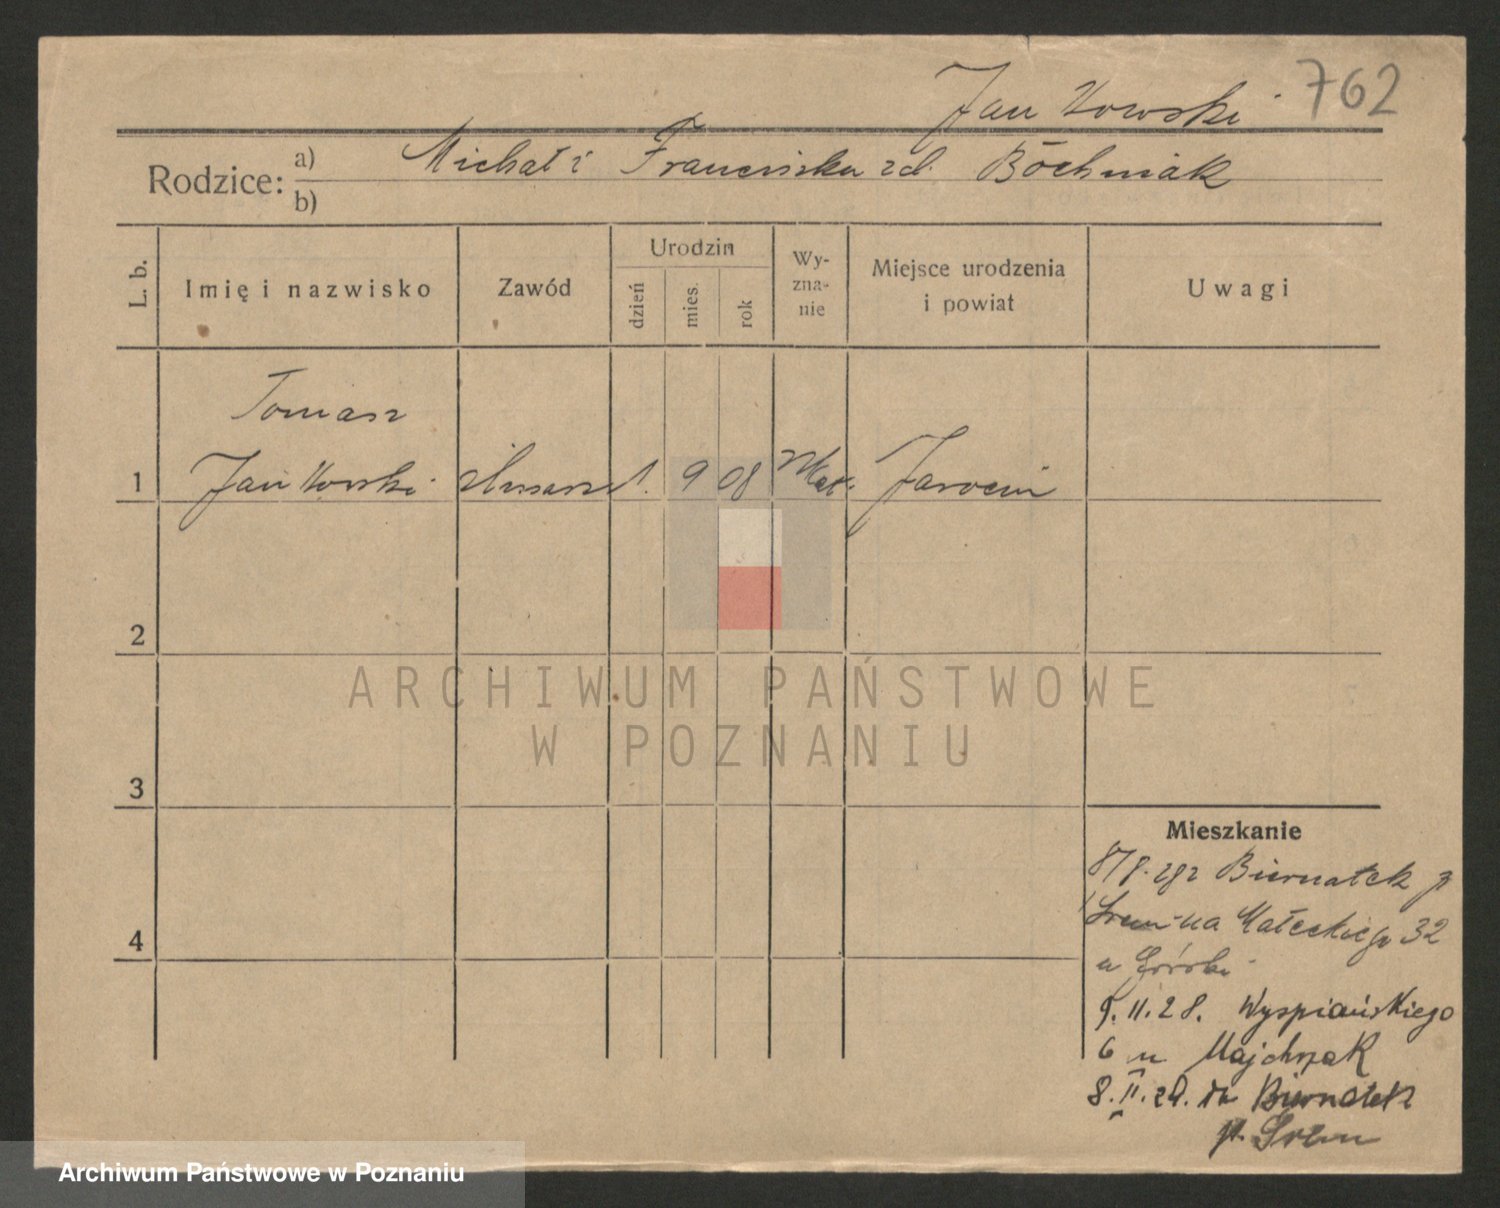 762
Jankowski
Rodzice: a) Michał i Franciszka zd. Böchniak
b)
L. b.
Imię i nazwisko
Zawód
Urodzin
dzień
mies.
rok
Wy-
zna-
nie
Miejsce urodzenia
i powiat
Uwagi
Tomasz
1 Jankowski ślusarz 1. 9 08 kat. Jarocin
2
3
4
Mieszkanie
Biernatek p
Śrem na Małeckiego 32
u Górski
9. 11. 28. Wyspiańskiego
6 u Majchrzak
8. II. 29. do Biernatek
p. Śrem
ARCHIWUM PAŃSTWOWE
W POZNANIU
Archiwum Państwowe w Poznaniu